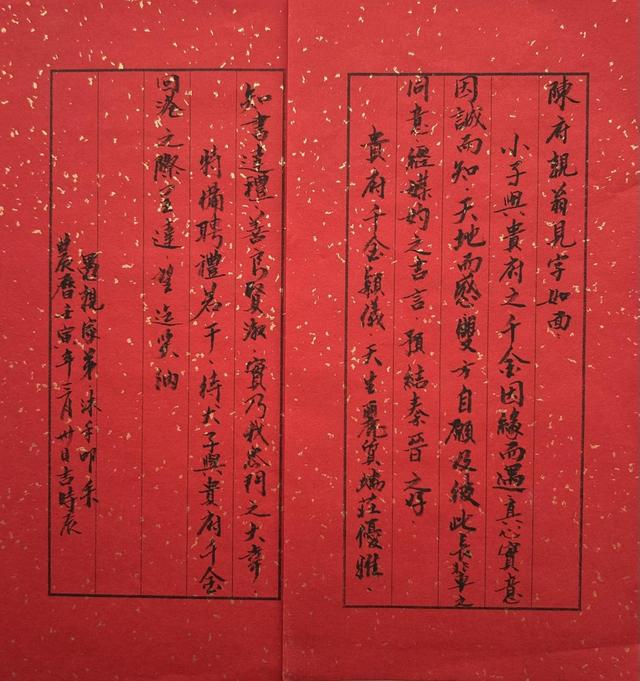 陳府親翁見字如面
小子與貴府之千金因緣而遇真心實意
因誠而知、天地而感、雙方自願及彼此長輩之
同意經媒妁之書言預結秦晉之好、
貴府千金穎儀天生麗質端莊優雅、
知書達禮、善良賢淑、實乃我門之大幸、
特備聘禮若干、待犬子與貴府千金
回港之際呈達、望迄笑納
愚親家弟沐手叩
農曆壬寅年月日吉時辰